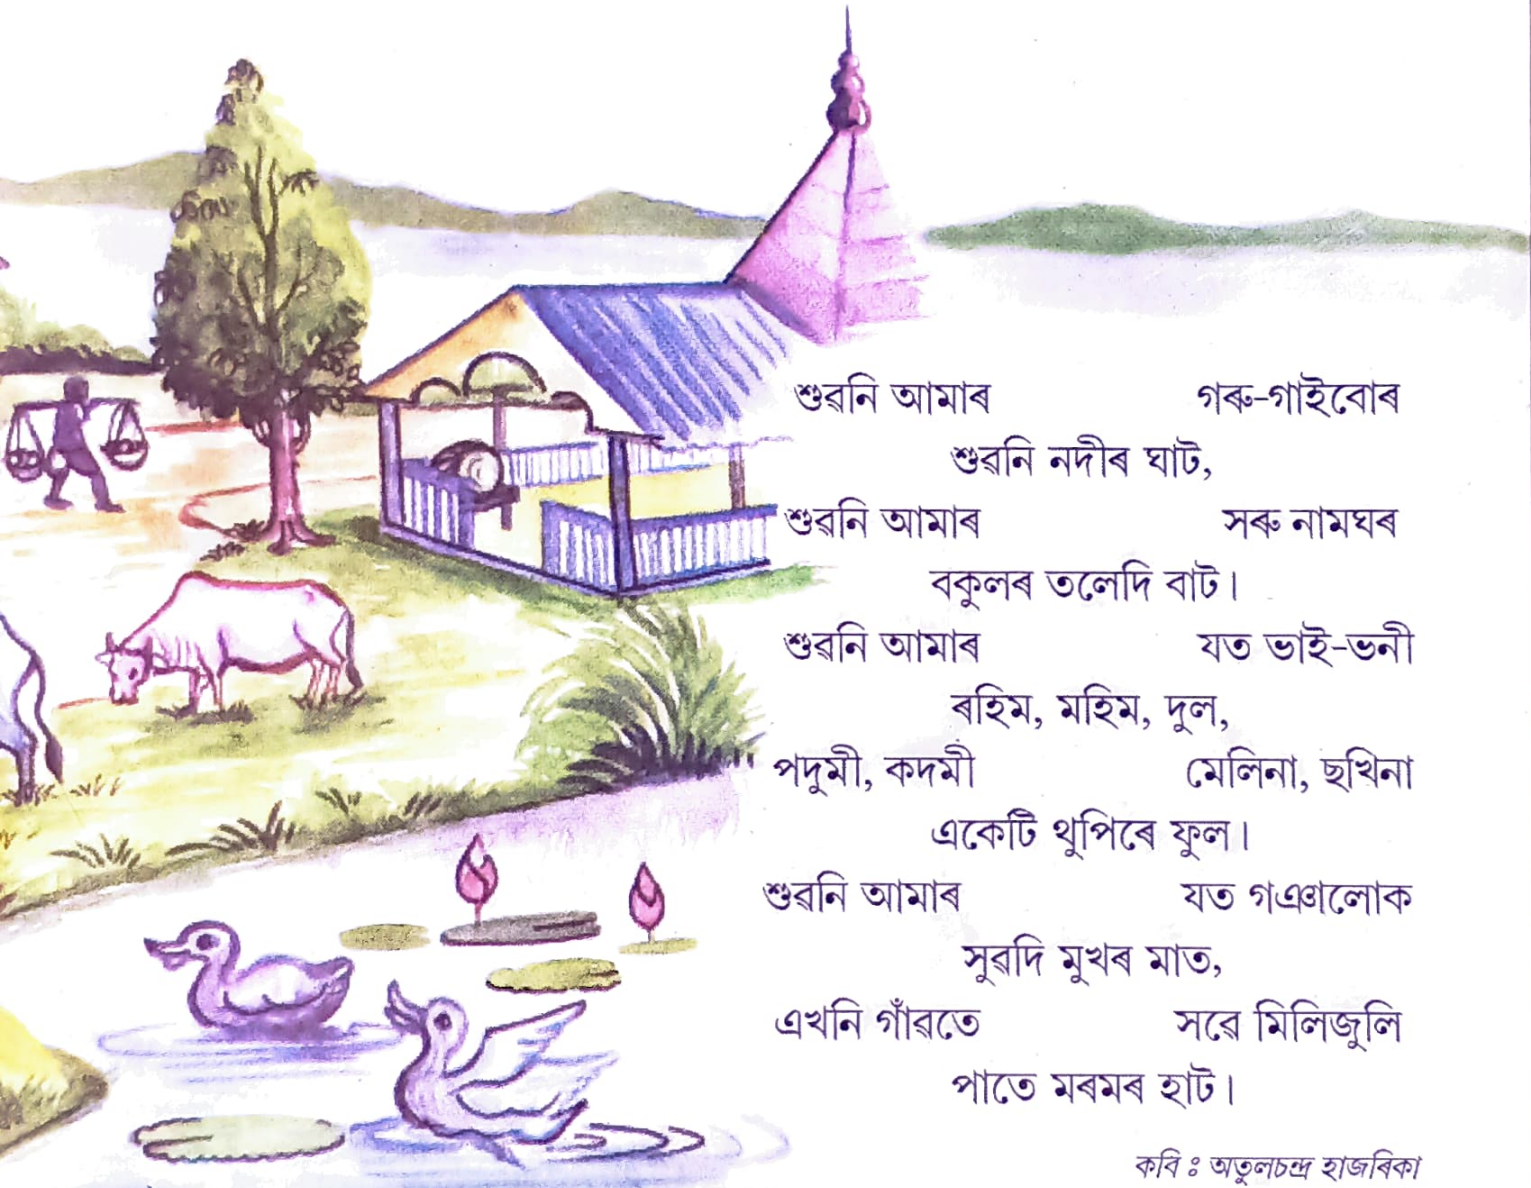 শুৱনি আমাৰ গৰু-গাইবোৰ
শুৱনি নদীৰ ঘাট,
শুৱনি আমাৰ সৰু নামঘৰ
বকুলৰ তলেদি বাট।
শুৱনি আমাৰ যত ভাই-ভনী
ৰহিম, মহিম, দুল,
পদুমী, কদমী মেলিনা, ছখিনা
একেটি থুপিৰে ফুল।
শুৱনি আমাৰ যত গঞালোক
সুৱদি মুখৰ মাত,
এখনি গাঁৱতে সৱে মিলিজুলি
পাতে মৰমৰ হাট।
কবি ঃ অতুলচন্দ্ৰ হাজৰিকা